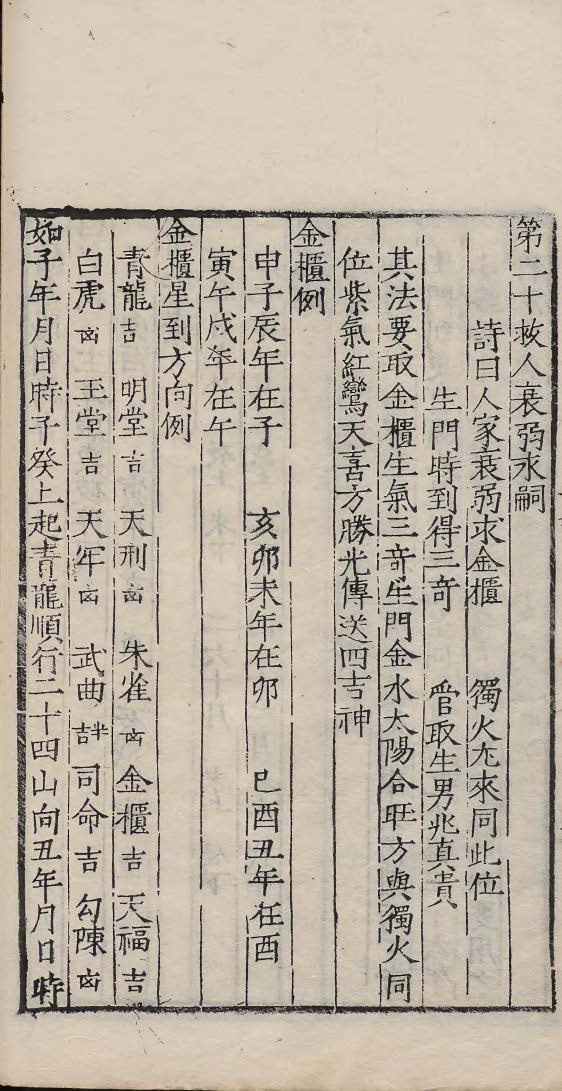 第二十救人衰弱求嗣
詩曰人家衰弱求金櫃　獨火尢來同此位
生門時到得三奇　管取生男兆真貴
其法要取金櫃生氣三奇生門金水太陽合旺方與獨火同
位紫氣紅鸞天喜方勝光傳送四吉神
金櫃例
申子辰年在子　亥卯未年在卯　巳酉丑年在酉
寅午戌年在午
金櫃星到方向例
青龍吉　明堂吉　天刑凶　朱雀凶　金櫃吉　天福吉
白虎凶　玉堂吉　天牢凶　武曲半吉　司命吉　勾陳凶
如子年月日時子癸上起青龍順行二十四山向丑年月日時